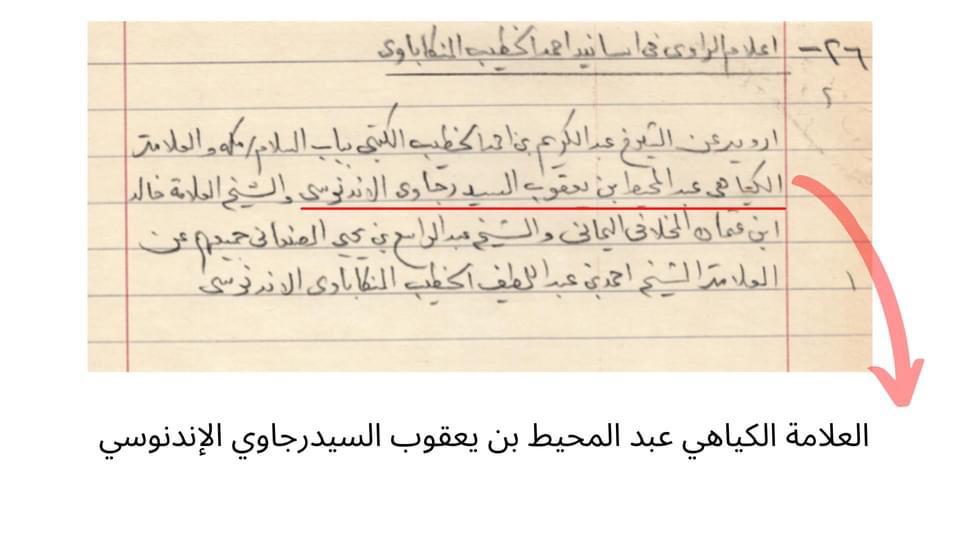 ٢٦- اعلام الراوى فى اسانيد احمد الخطيب المنكاباوى
٢
ارويه عن الشيخ عبد الكريم بن احمد الخطيب الكتبي بباب السلام/مكه والعلامة
الكياهى عبد المحيط بن يعقوب السيد رجاوى الاندنوسى والشيخ العلامة خالد
ابن عثمان المخلافى اليمانى والشيخ عبد الواسع بن يحيى الصنعانى جميعهم عن
العلامة الشيخ احمد بن عبد اللطيف الخطيب المنكاباوى الاندنوسى
١
العلامة الكياهي عبد المحيط بن يعقوب السيدرجاوي الإندنوسي